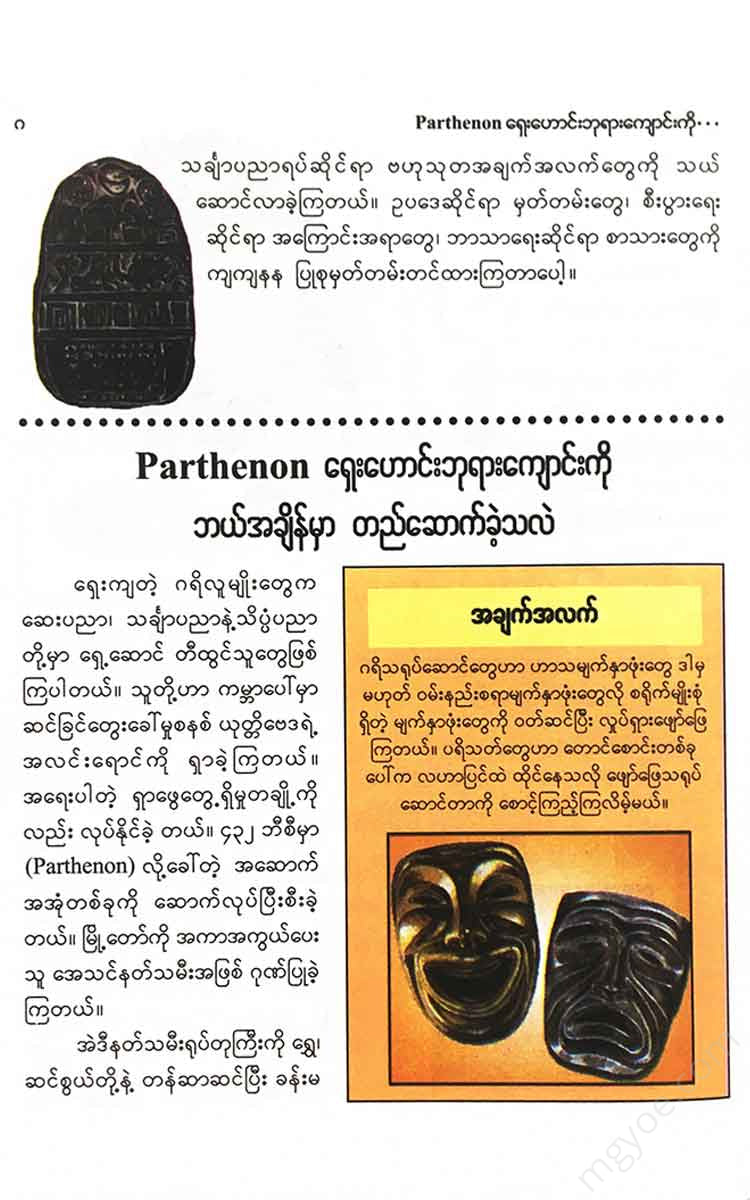 ဂ
Parthenon ရှေးဟောင်းဘုရားကျောင်းကို···
သင်္ချာပညာရပ်ဆိုင်ရာ ဗဟုသုတအချက်အလက်တွေကို သယ်
ဆောင်လာခဲ့ကြတယ်။ ဥပဒေဆိုင်ရာ မှတ်တမ်းတွေ၊ စီးပွားရေး
ဆိုင်ရာ အကြောင်းအရာတွေ၊ ဘာသာရေးဆိုင်ရာ စာသားတွေကို
ကျကျနန ပြုစုမှတ်တမ်းတင်ထားကြတာပေါ့။
Parthenon ရှေးဟောင်းဘုရားကျောင်းကို
ဘယ်အချိန်မှာ တည်ဆောက်ခဲ့သလဲ
ရှေးကျတဲ့ ဂရိလူမျိုးတွေက
ဆေးပညာ၊ သင်္ချာပညာနဲ့သိပ္ပံပညာ
တို့မှာ ရှေ့ဆောင် တီထွင်သူတွေဖြစ်
ကြပါတယ်။ သူတို့ဟာ ကမ္ဘာပေါ်မှာ
ဆင်ခြင်တွေးခေါ်မှုစနစ် ယုတ္တိဗေဒရဲ့
အလင်းရောင်ကို ရှာခဲ့ကြတယ်။
အရေးပါတဲ့ ရှာဖွေတွေ့ရှိမှုတချို့ကို
လည်း လုပ်နိုင်ခဲ့ တယ်။ ၄၃၂ ဘီစီမှာ
(Parthenon) လို့ခေါ်တဲ့ အဆောက်
အအုံတစ်ခုကို ဆောက်လုပ်ပြီးစီးခဲ့
တယ်။ မြို့တော်ကို အကာအကွယ်ပေး
သူ အေသင်နတ်သမီးအဖြစ် ဂုဏ်ပြုခဲ့
ကြတယ်။
အဲဒီနတ်သမီးရုပ်တုကြီးကို ရွှေ၊
ဆင်စွယ်တို့နဲ့ တန်ဆာဆင်ပြီး ခန်းမ
အချက်အလက်
ဂရိသရုပ်ဆောင်တွေဟာ ဟာသမျက်နှာဖုံးတွေ ဒါမှ
မဟုတ် ဝမ်းနည်းစရာမျက်နှာဖုံးတွေလို စရိုက်မျိုးစုံ
ရှိတဲ့ မျက်နှာဖုံးတွေကို ဝတ်ဆင်ပြီး လှုပ်ရှားဖျော်ဖြေ
ကြတယ်။ ပရိသတ်တွေဟာ တောင်စောင်းတစ်ခု
ပေါ်က လဟာပြင်ထဲ ထိုင်နေသလို ဖျော်ဖြေသရုပ်
ဆောင်တာကို စောင့်ကြည့်ကြလိမ့်မယ်။